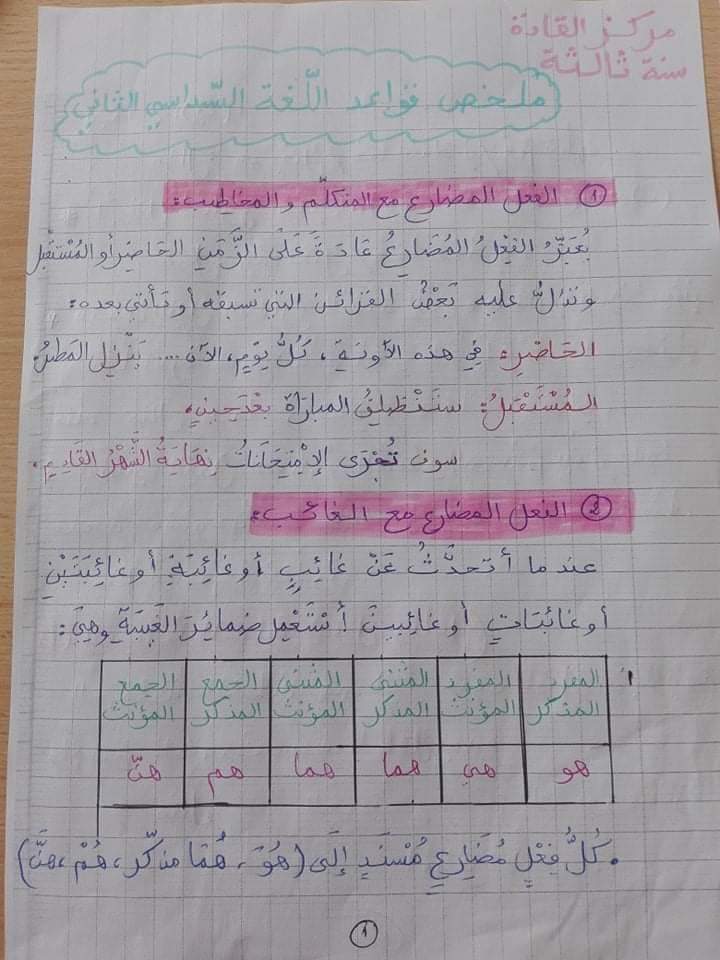 مركز القادة
سنة ثالثة
ملخص قواعد اللّغة السّداسي الثاني
① الفعل المضارع مع المتكلّم والمخاطب:
يُعَبِّرُ الفِعْلُ المُضَارِعُ عَادَةً عَلَى الزَّمَنِ الحَاضِرِ أو المُسْتَقْبَل
وتدُلُّ عليه بَعْضُ القرائن التي تسبقه أو تأتي بعده:
الحَاضِر: في هذه الآونة، كلُّ يوْمٍ، الآن .... يَنْزِل المَطَرُ.
المُسْتَقْبَلُ: سَتَنْطَلِقُ المباراة بعْدَ حِينٍ.
سوف تُجْرَى الاِمْتِحَانَاتُ نِهَايَةُ الشَّهْرُ القَادِمِ.
② الفعل المضارع مع الغائب:
عندما أتحدَّثُ عَنْ غَائِبٍ أو غَائِبَةٍ أو غَائِبَتَيْنِ
أو غائبَاتٍ أو غَائِبِينَ أسْتَعْمِل ضمائرَ الغَيْبَةِ وهيَ:
المفرد المذكر المفرد المؤنث المثنى المذكر المثنى المؤنث الجمع المذكر الجمع المؤنث
هو هي هما هما هم هنّ
. كُلُّ فِعْلٍ مُضَارِعٍ مُسْنَدٍ إلَى (هُوَ، هُمَا مذكّر، هُمْ، هنَّ)
1